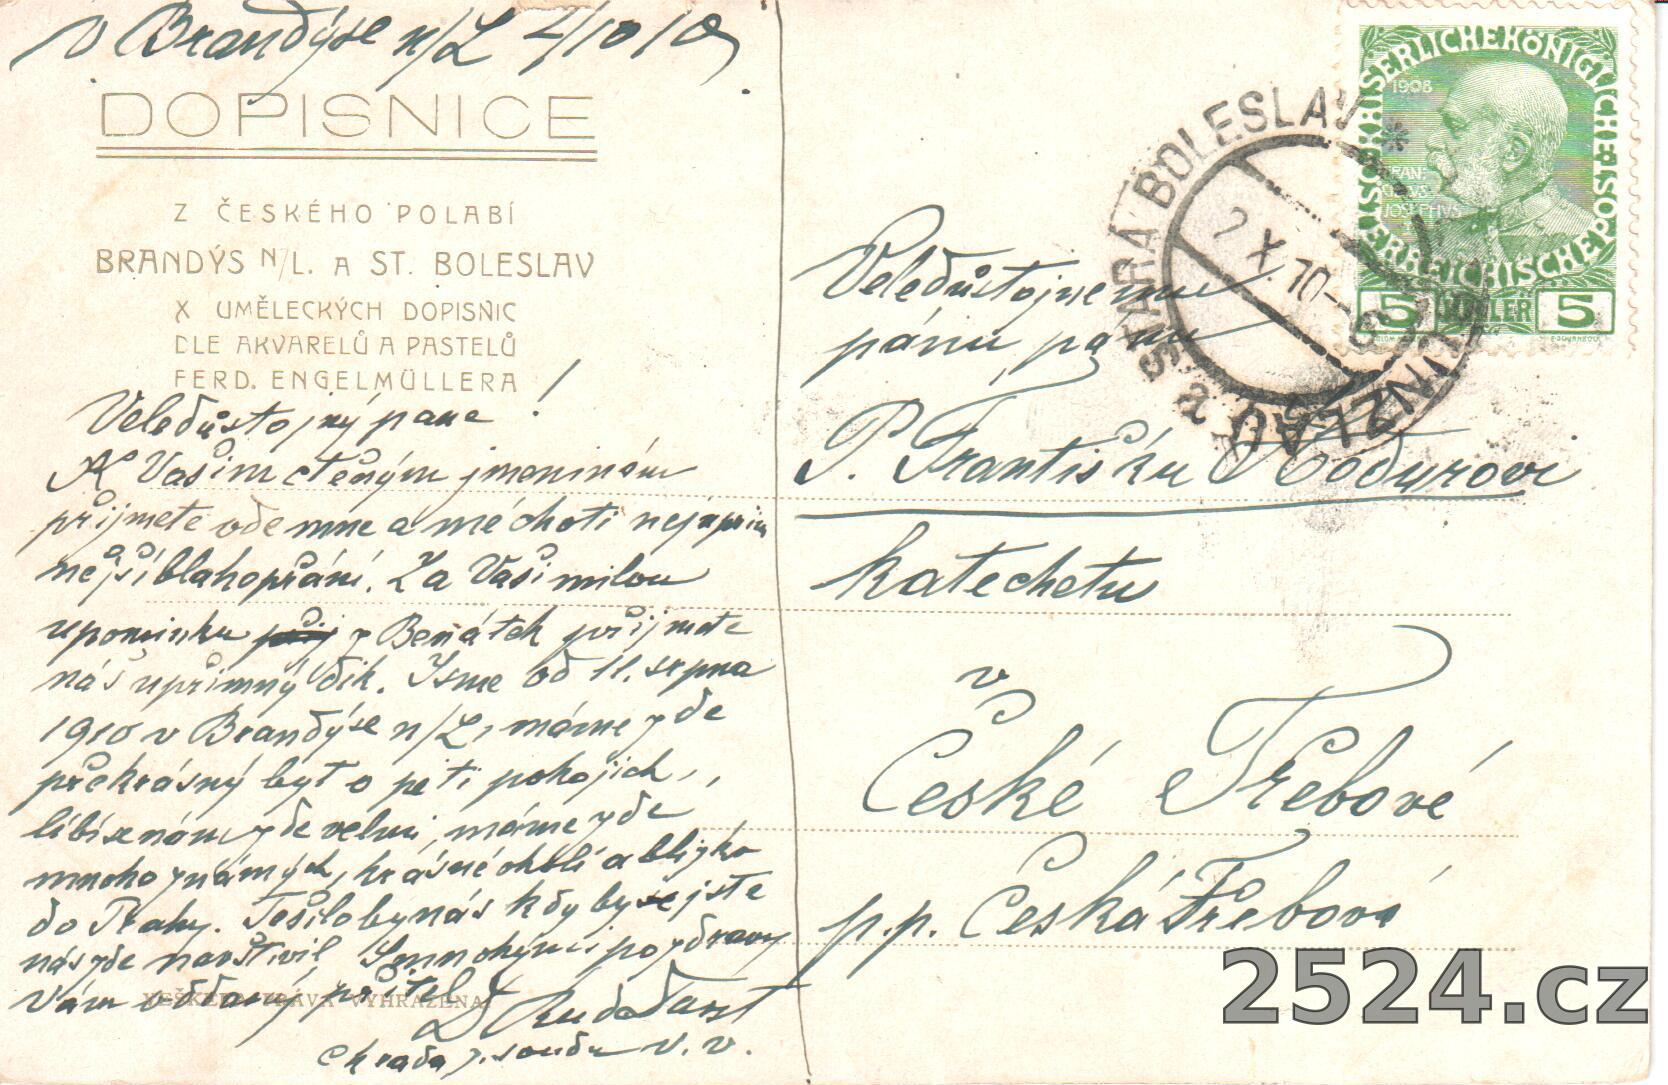 V Brandýse n/L 2/10 10
DOPISNICE
Z ČESKÉHO POLABÍ
BRANDÝS N/L. A ST. BOLESLAV
X UMĚLECKÝCH DOPISNIC
DLE AKVARELŮ A PASTELŮ
FERD. ENGELMÜLLERA
Veledůstojný pane!
K Vašim ctěným jmeninám
přijměte ode mne a mé choti nejúpřim
nější blahopřání. Za Vaši milou
upomínku z Benátek přijměte
náš upřímný dík. Jsme od 11. srpna
1910 v Brandýse n/L, máme zde
překrásný byt o pěti pokojích,
líbí se nám zde velmi, máme zde
mnoho známých, krásné okolí a blízko
do Prahy. Těšilo by nás kdyby jste
nás zde navštívil. S mnohými pozdravy
Vám oddaný přítel
VEŠKERÁ PRÁVA VYHRAZENA.
c k rada z. soudu v. v.
KAISERLICHE KÖNIGLICHE ÖSTERREICHISCHE POST
1908
FRAN:
CISCVS
JOSEPHVS
5 HELLER 5
STARÁ BOLESLAV *
2 X 10-6
ALTBUNZLAU
Veledůstojnému
pánu panu
P. Františku
katechetu
v
České Třebové
p.p. Česká Třebová
2524.cz